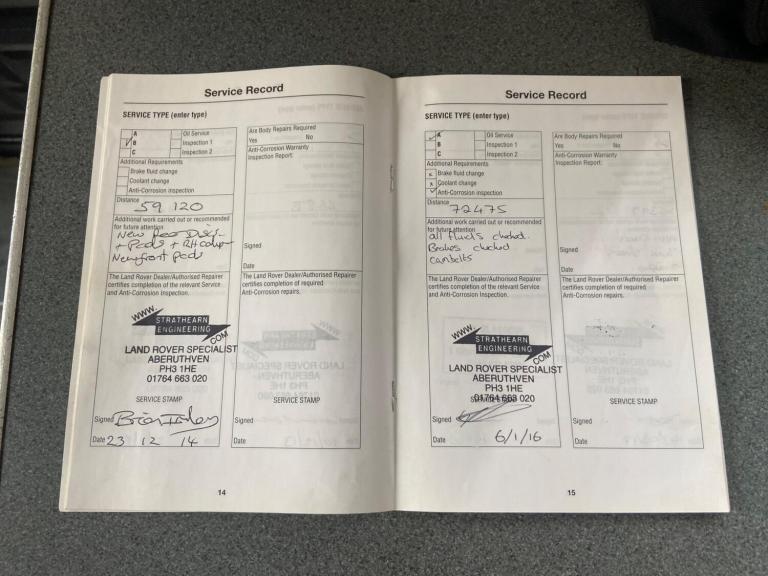 Service Record
SERVICE TYPE (enter type)
A
B
C
Oil Service
Inspection 1
Inspection 2
Additional Requirements
Brake fluid change
Coolant change
Anti-Corrosion inspection
Distance
59 120
Additional work carried out or recommended
for future attention
New Rear Discs
+ Pads + RH
New front Pads
The Land Rover Dealer/Authorised Repairer
certifies completion of the relevant Service
and Anti-Corrosion Inspection.
WWW.
STRATHEARN
ENGINEERING
.COM
LAND ROVER SPECIALIST
ABERUTHVEN
PH3 1HE
01764 663 020
SERVICE STAMP
Signed
Date 23 12 14
Are Body Repairs Required
Yes No
Anti-Corrosion Warranty
Inspection Report:
Signed
Date
The Land Rover Dealer/Authorised Repairer
certifies completion of required
Anti-Corrosion repairs.
SERVICE STAMP
Signed
Date
14
Service Record
SERVICE TYPE (enter type)
A
B
C
Oil Service
Inspection 1
Inspection 2
Additional Requirements
Brake fluid change
Coolant change
Anti-Corrosion inspection
Distance
72475
Additional work carried out or recommended
for future attention
all fluids checked.
Brakes checked
cambelts
The Land Rover Dealer/Authorised Repairer
certifies completion of the relevant Service
and Anti-Corrosion Inspection.
WWW.
STRATHEARN
ENGINEERING
.COM
LAND ROVER SPECIALIST
ABERUTHVEN
PH3 1HE
01764 663 020
SERVICE STAMP
Signed
Date 6/1/16
Are Body Repairs Required
Yes No
Anti-Corrosion Warranty
Inspection Report:
Signed
Date
The Land Rover Dealer/Authorised Repairer
certifies completion of required
Anti-Corrosion repairs.
SERVICE STAMP
Signed
Date
15